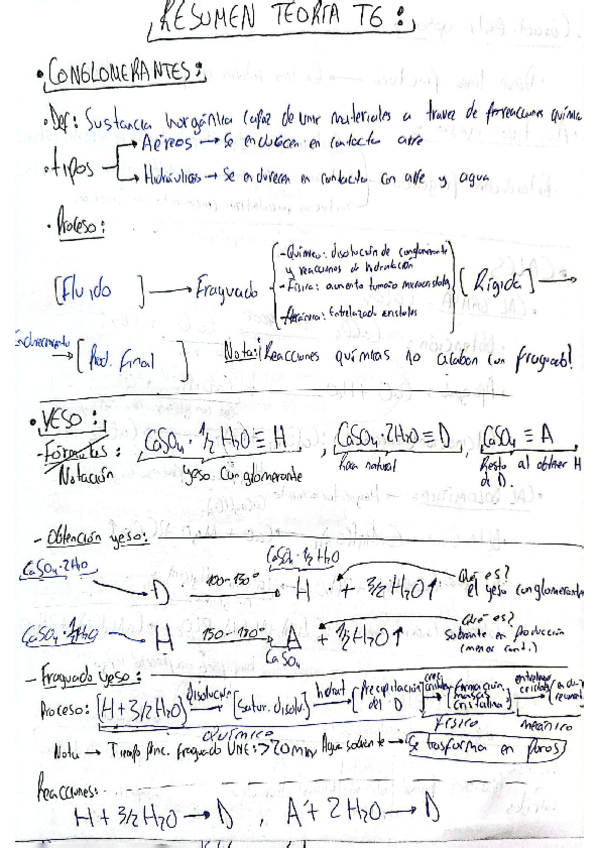 RESUMEN TEORÍA T6:
• CONGLOMERANTES:
• Def: Sustancia inorgánica capaz de unir materiales a traves de reacciones químic
• tipos
Aéreos → Se endurecen en contacto aire
Hidráulicos → Se endurecen en contacto con aire y agua
• Proceso:
[Fluido] → Fraguado
- Químico: disolución de conglomerante y reacciones de hidratación
- Física: aumento tamaño microcristales
- Mecánica: Entrelazado cristales
[Rígida] →
Endurecimiento → [Prod. Final]
Nota: ¡Reacciones químicas no acaban con fraguado!
• YESO:
- Fórmulas: Notación
CaSO4 · 1/2 H2O ≡ H, CaSO4 · 2H2O ≡ D, CaSO4 ≡ A
yeso Conglomerante
Roca natural
Resto al obtener H de D.
- Obtención yeso:
CaSO4·2H2O
CaSO4·1/2H2O
D 100-130° → H + 3/2 H2O ↑
Qué es? el yeso conglomerante
CaSO4·1/2H2O
H 130-180° → A + 1/2 H2O ↑
CaSO4
Qué es? sobrante en Producción (menor cant.)
- Fraguado Yeso:
Proceso: [H + 3/2 H2O] disolución → [Satur. disolv.] hidrat. → [Precipitación del D] → [Formación masas cristalina]
químico
físico
mecánico
Nota → Tiempo Princ. Fraguado UNE: >20min
Agua sobrante → Se trasforma en poros
Reacciones:
H + 3/2 H2O → D , A + 2 H2O → D